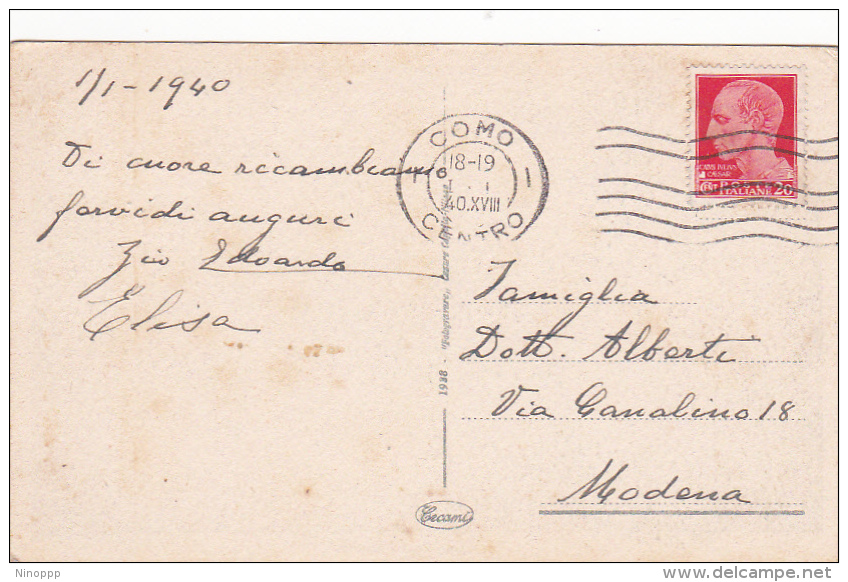 1/1 - 1940
Di cuore ricambiamo
fervidi auguri
Zio Edoardo
Elisa
COMO
18-19
1 · 1
40.XVIII
CENTRO
CAESAR
ITALIANE 20
Famiglia
Dott. Alberti
Via Canalino 18
Modena
1938 -
Cecami
Ninoppp
delcampe.net